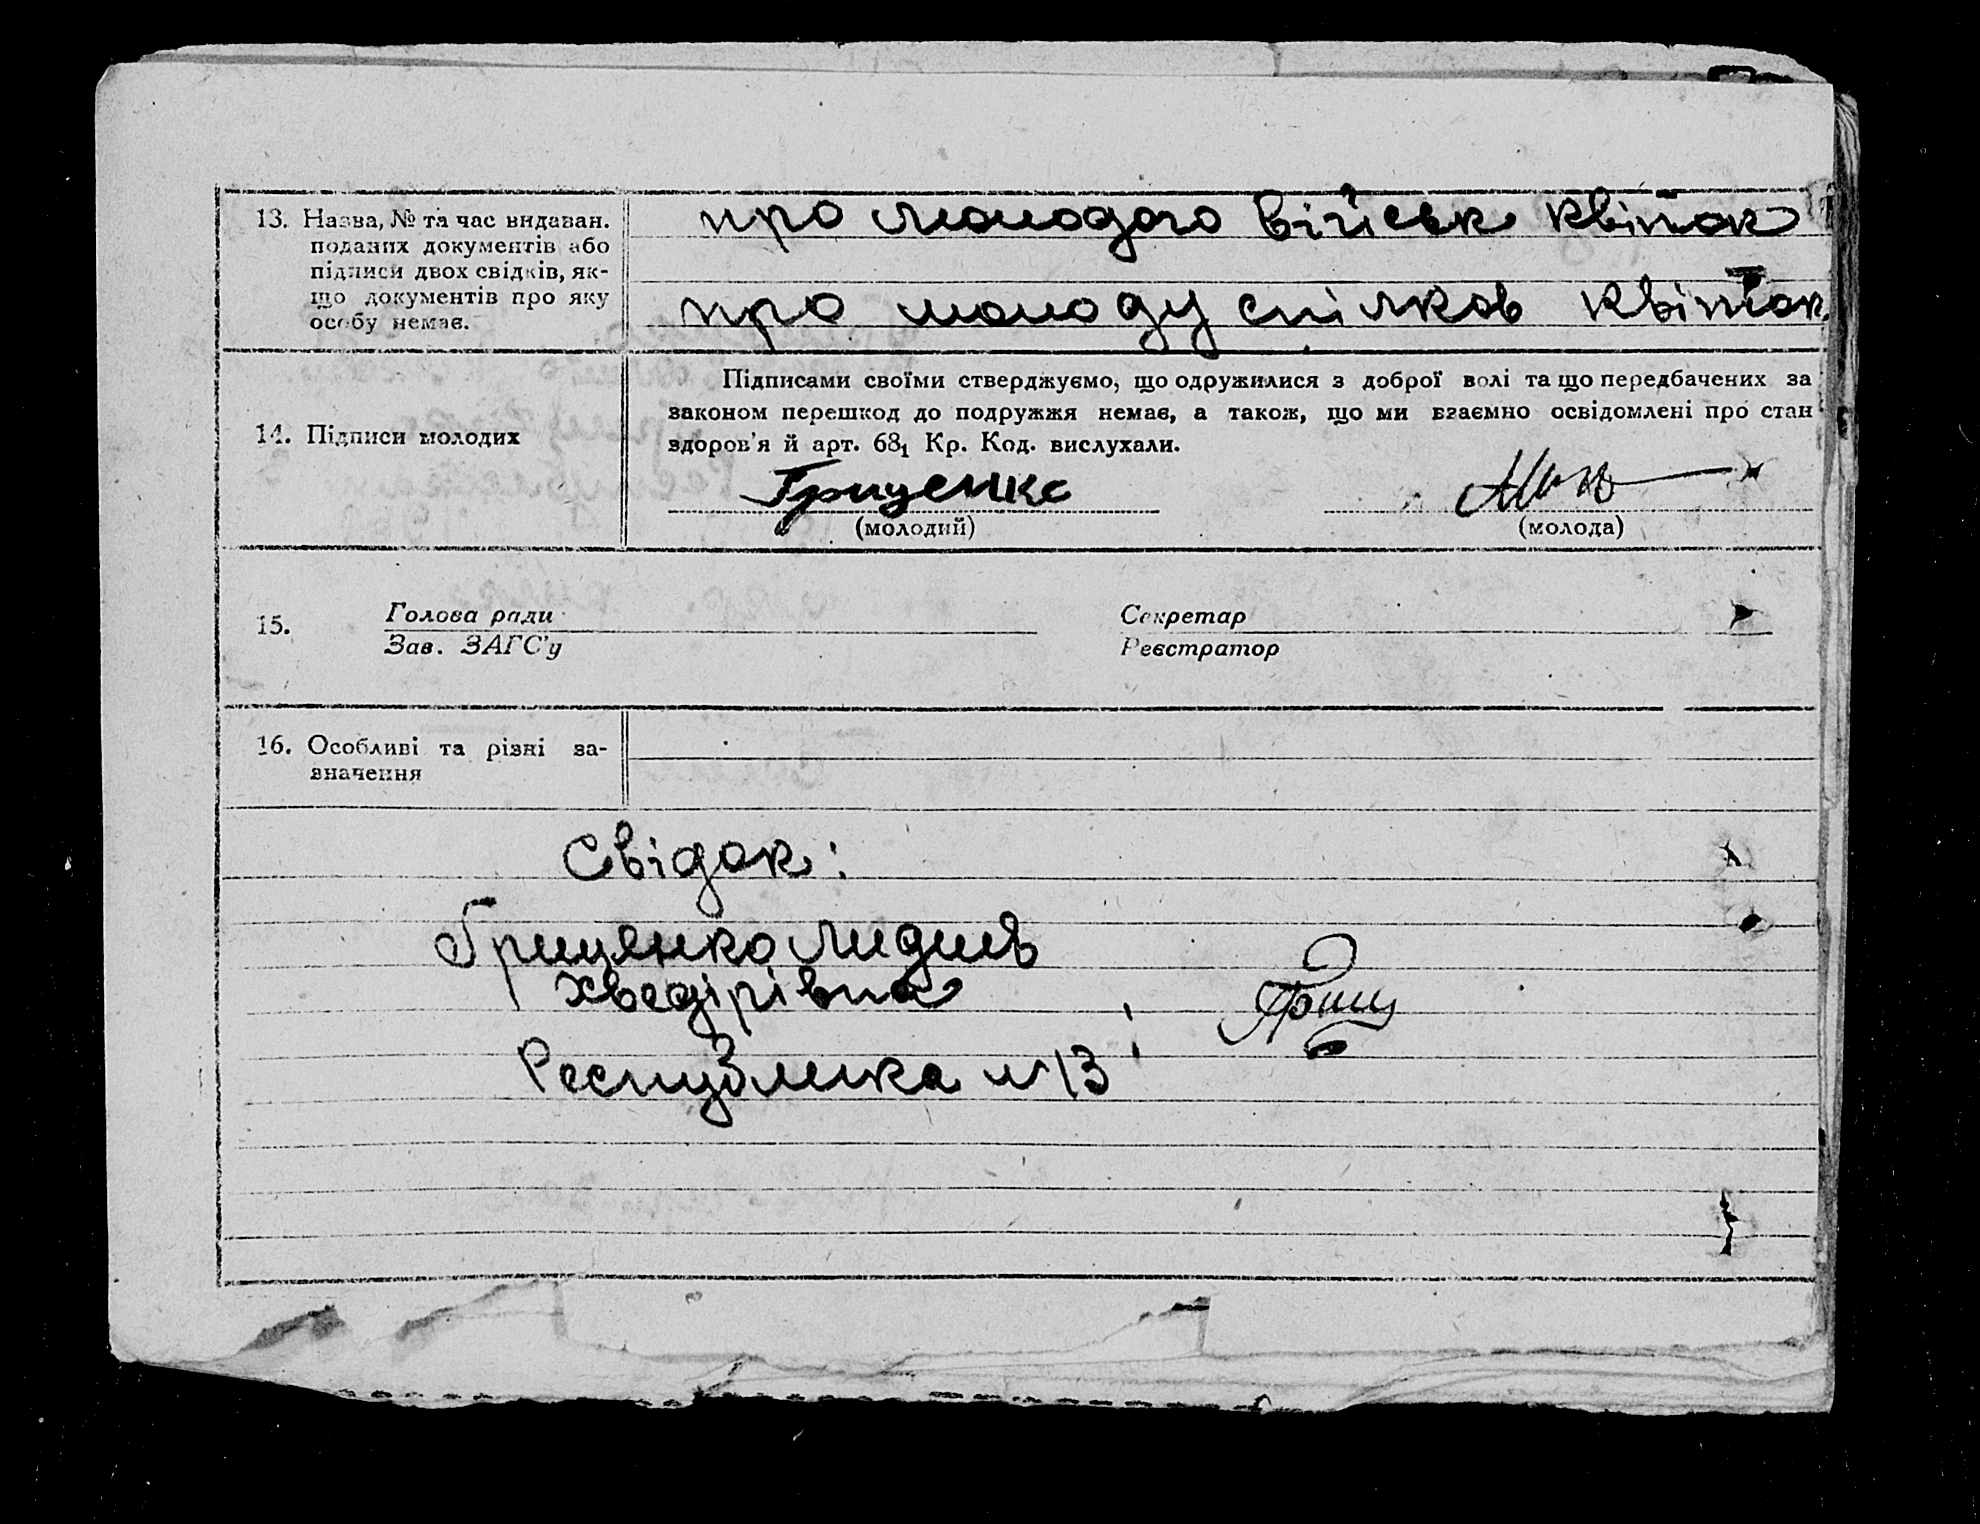 13. Назва, № та час видаван.
поданих документів або
підписи двох свідків, як-
що документів про яку
особу немає.
про молодого військ квиток
про молоду спілков квіток
14. Підписи молодих
Підписами своїми стверджуємо, що одружилися з доброї волі та що передбачених за
законом перешкод до подружжя немає, а також, що ми взаємно освідомлені про стан
здоров'я й арт. 68₁ Кр. Код. вислухали.
Гриценко
(молодий)
(молода)
15. Голова ради Секретар
Зав. ЗАГС'у Реєстратор
16. Особливі та різні за-
значення
Свідок:
Грицянко Лидия
Хведірівна
Гриц
Республика №13